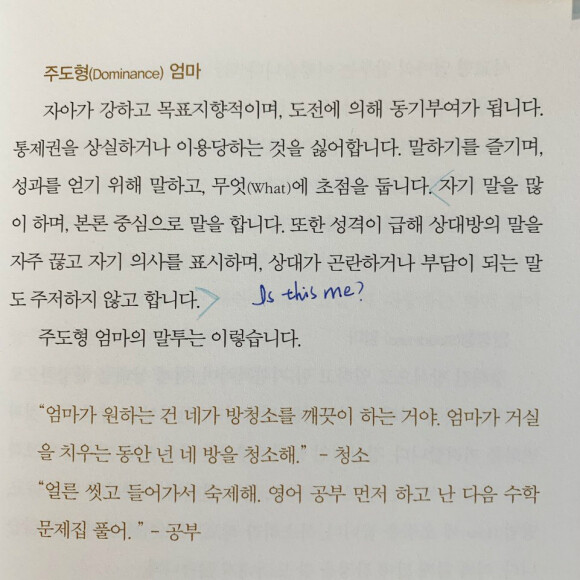 주도형(Dominance) 엄마
자아가 강하고 목표지향적이며, 도전에 의해 동기부여가 됩니다.
통제권을 상실하거나 이용당하는 것을 싫어합니다. 말하기를 즐기며,
성과를 얻기 위해 말하고, 무엇(What)에 초점을 둡니다. 자기 말을 많
이 하며, 본론 중심으로 말을 합니다. 또한 성격이 급해 상대방의 말을
자주 끊고 자기 의사를 표시하며, 상대가 곤란하거나 부담이 되는 말
도 주저하지 않고 합니다. Is this me?
주도형 엄마의 말투는 이렇습니다.
“엄마가 원하는 건 네가 방청소를 깨끗이 하는 거야. 엄마가 거실
을 치우는 동안 넌 네 방을 청소해.” - 청소
“얼른 씻고 들어가서 숙제해. 영어 공부 먼저 하고 난 다음 수학
문제집 풀어. ” - 공부